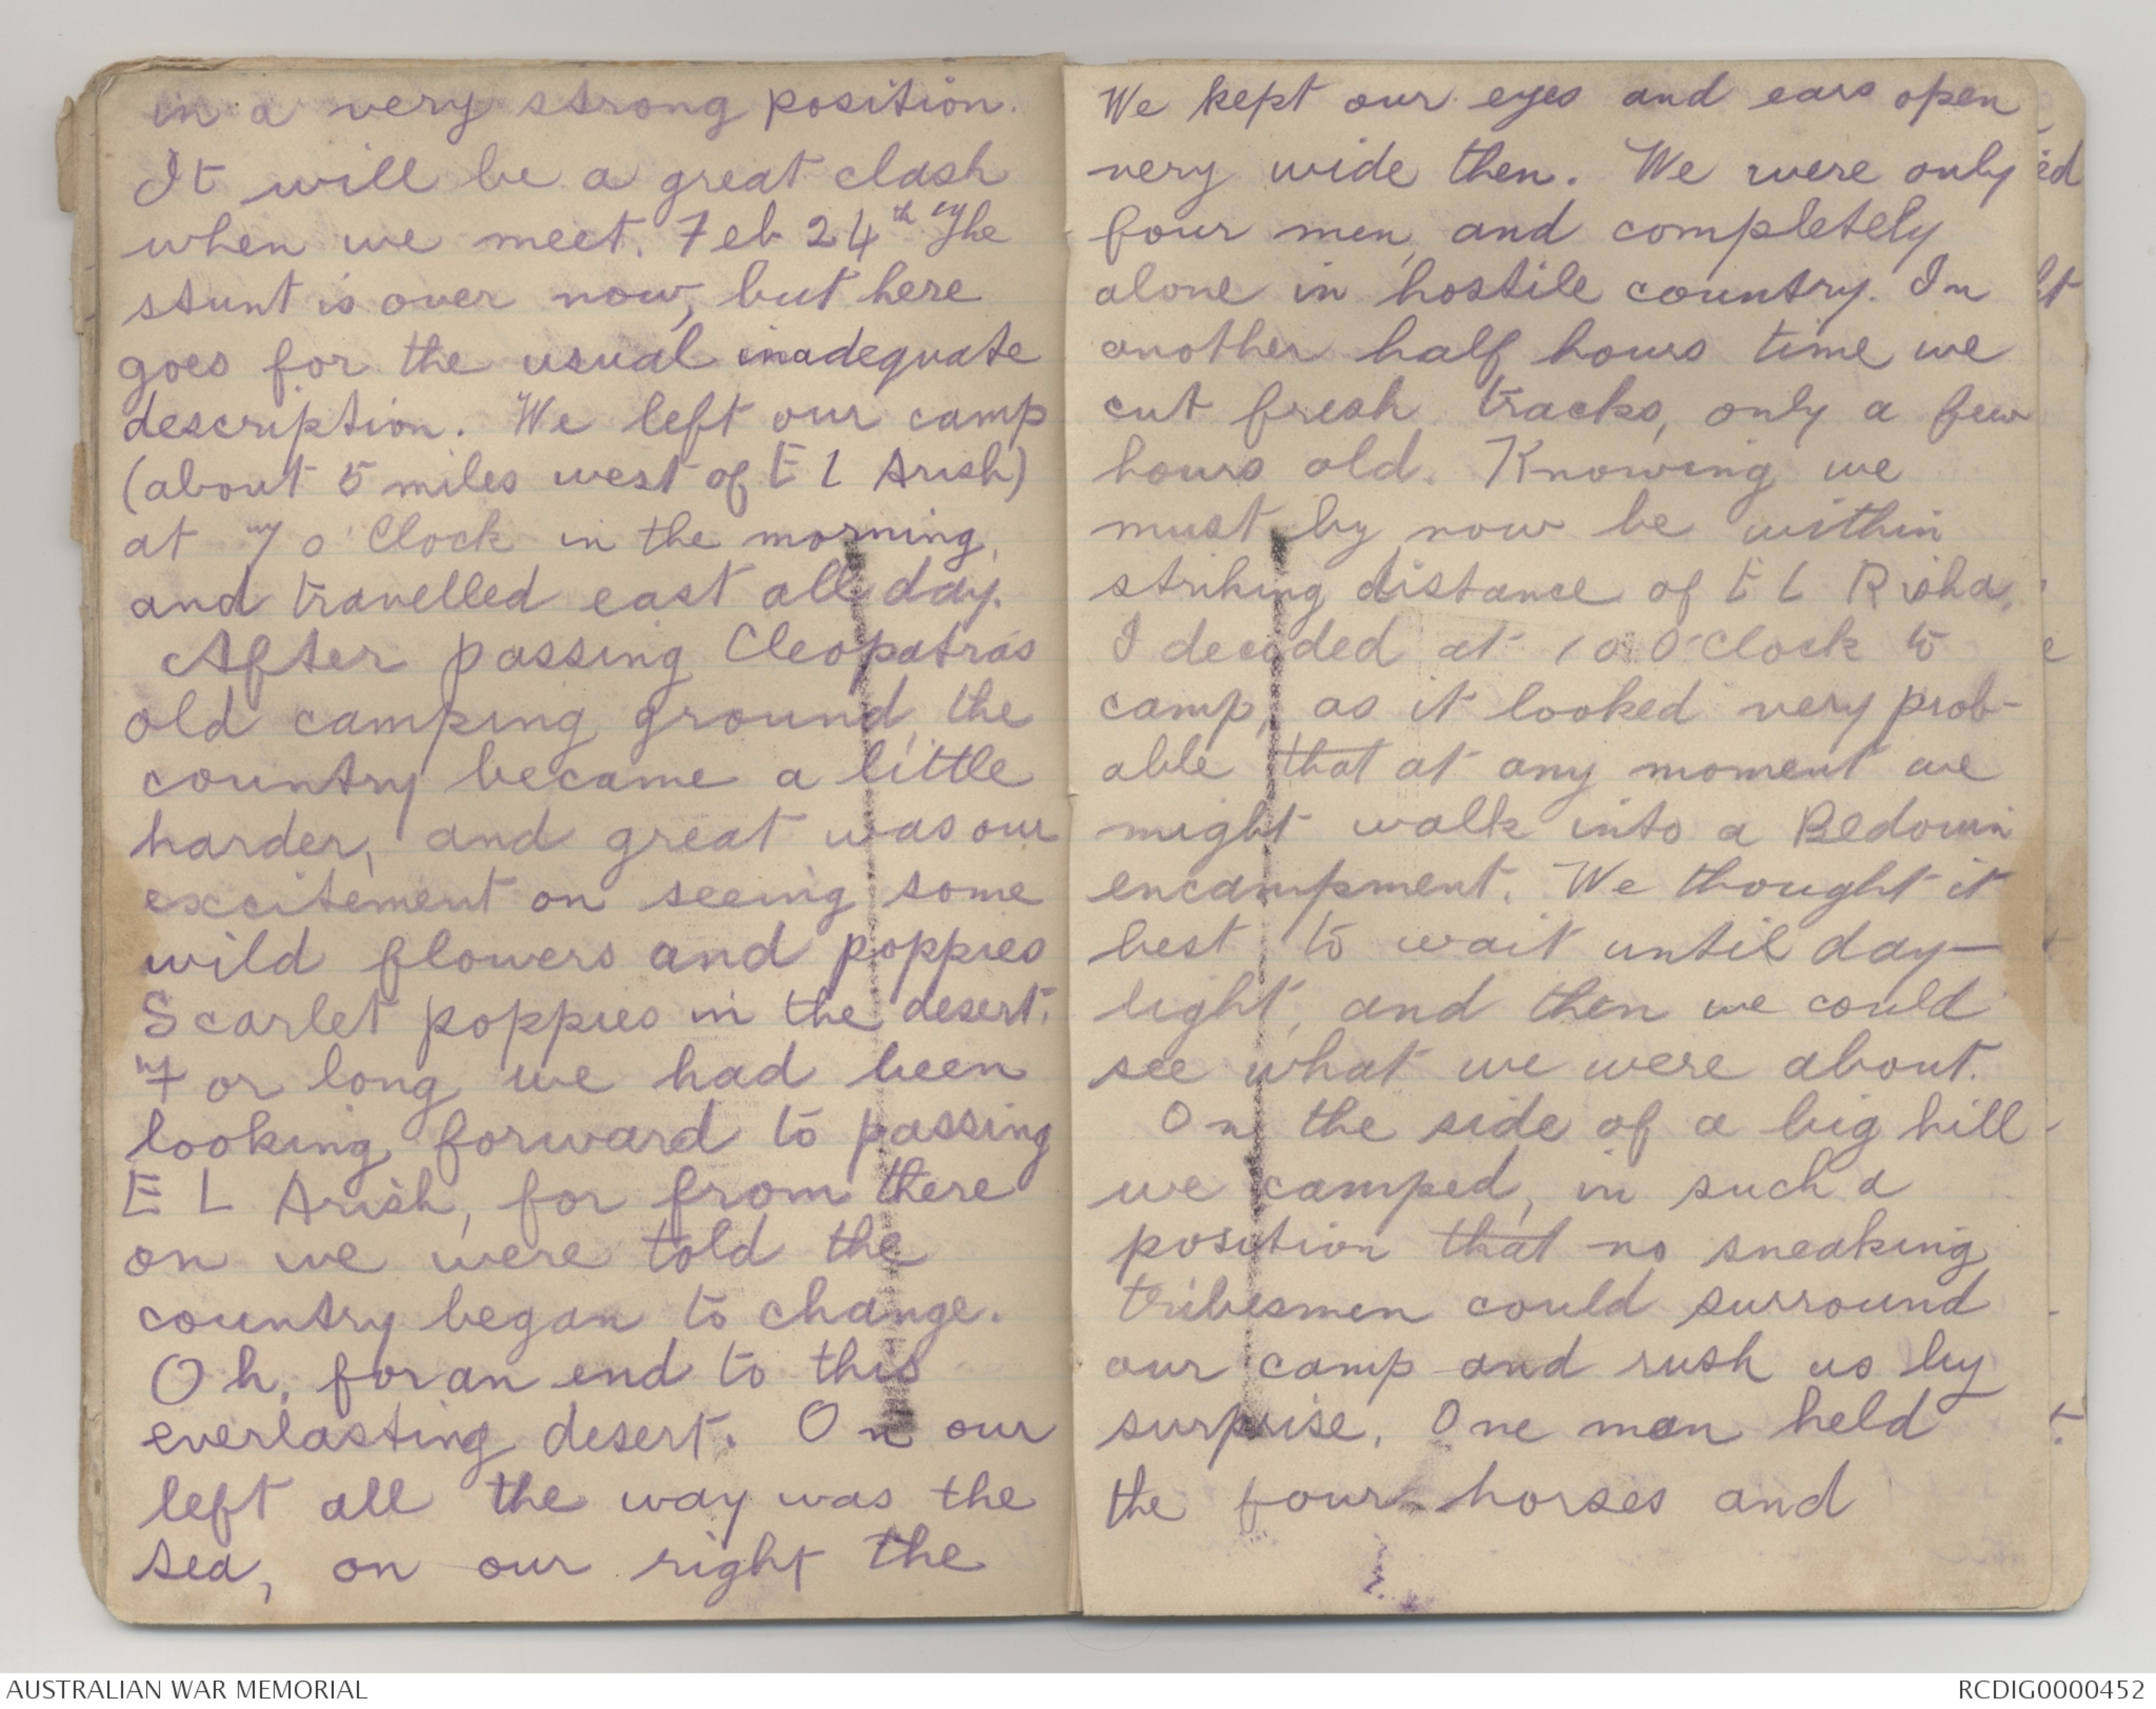 in a very strong position.
It will be a great clash
when we meet. Feb 24th The
stunt is over now, but here
goes for the usual inadequate
description. We left our camp
(about 5 miles west of El Arish)
at 7 o'Clock in the morning,
and travelled east all day.
After passing Cleopatras
old camping ground, the
country became a little
harder, and great was our
excitement on seeing some
wild flowers and poppies
Scarlet poppies in the desert.
For long we had been
looking forward to passing
EL Arish, for from there
on we were told the
country began to change.
Oh, for an end to this
everlasting desert. On our
left all the way was the
sea, on our right the
We kept our eyes and ears open
very wide then. We were only
four men, and completely
alone in hostile country. In
another half hours time we
cut fresh tracks, only a few
hours old. Knowing we
must by now be within
striking distance of EL Risha,
I decided at 10 O'Clock to
camp, as it looked very prob-
able that at any moment we
might walk into a Bedouin
encampment. We thought it
best to wait until day-
light, and then we could
see what we were about.
On the side of a big hill
we camped, in such a
position that no sneaking
tribesmen could surround
our camp and rush us by
surprise. One man held
the four horses and
AUSTRALIAN WAR MEMORIAL
RCDIG0000452